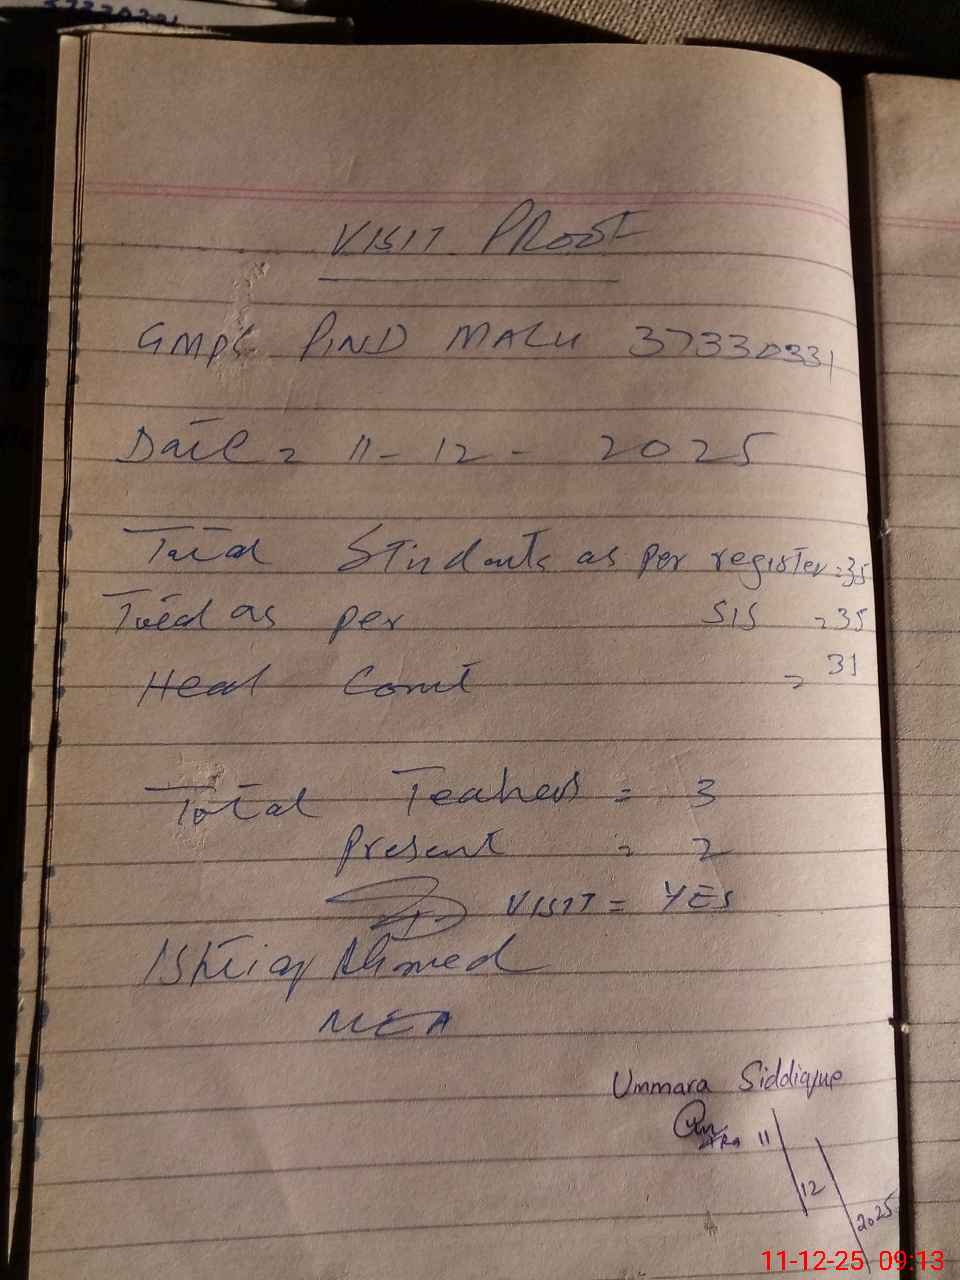 VISIT PROOF
GMPS PIND MALU 37330331
Date = 11-12-2025
Total Students as per register = 35
Total as per SIS = 35
Head Count = 31
Total Teachers = 3
Present = 2
VISIT = YES
Ishtiaq Ahmed
MEA
Ummara Siddique
11
12
2025
11-12-25 09:13